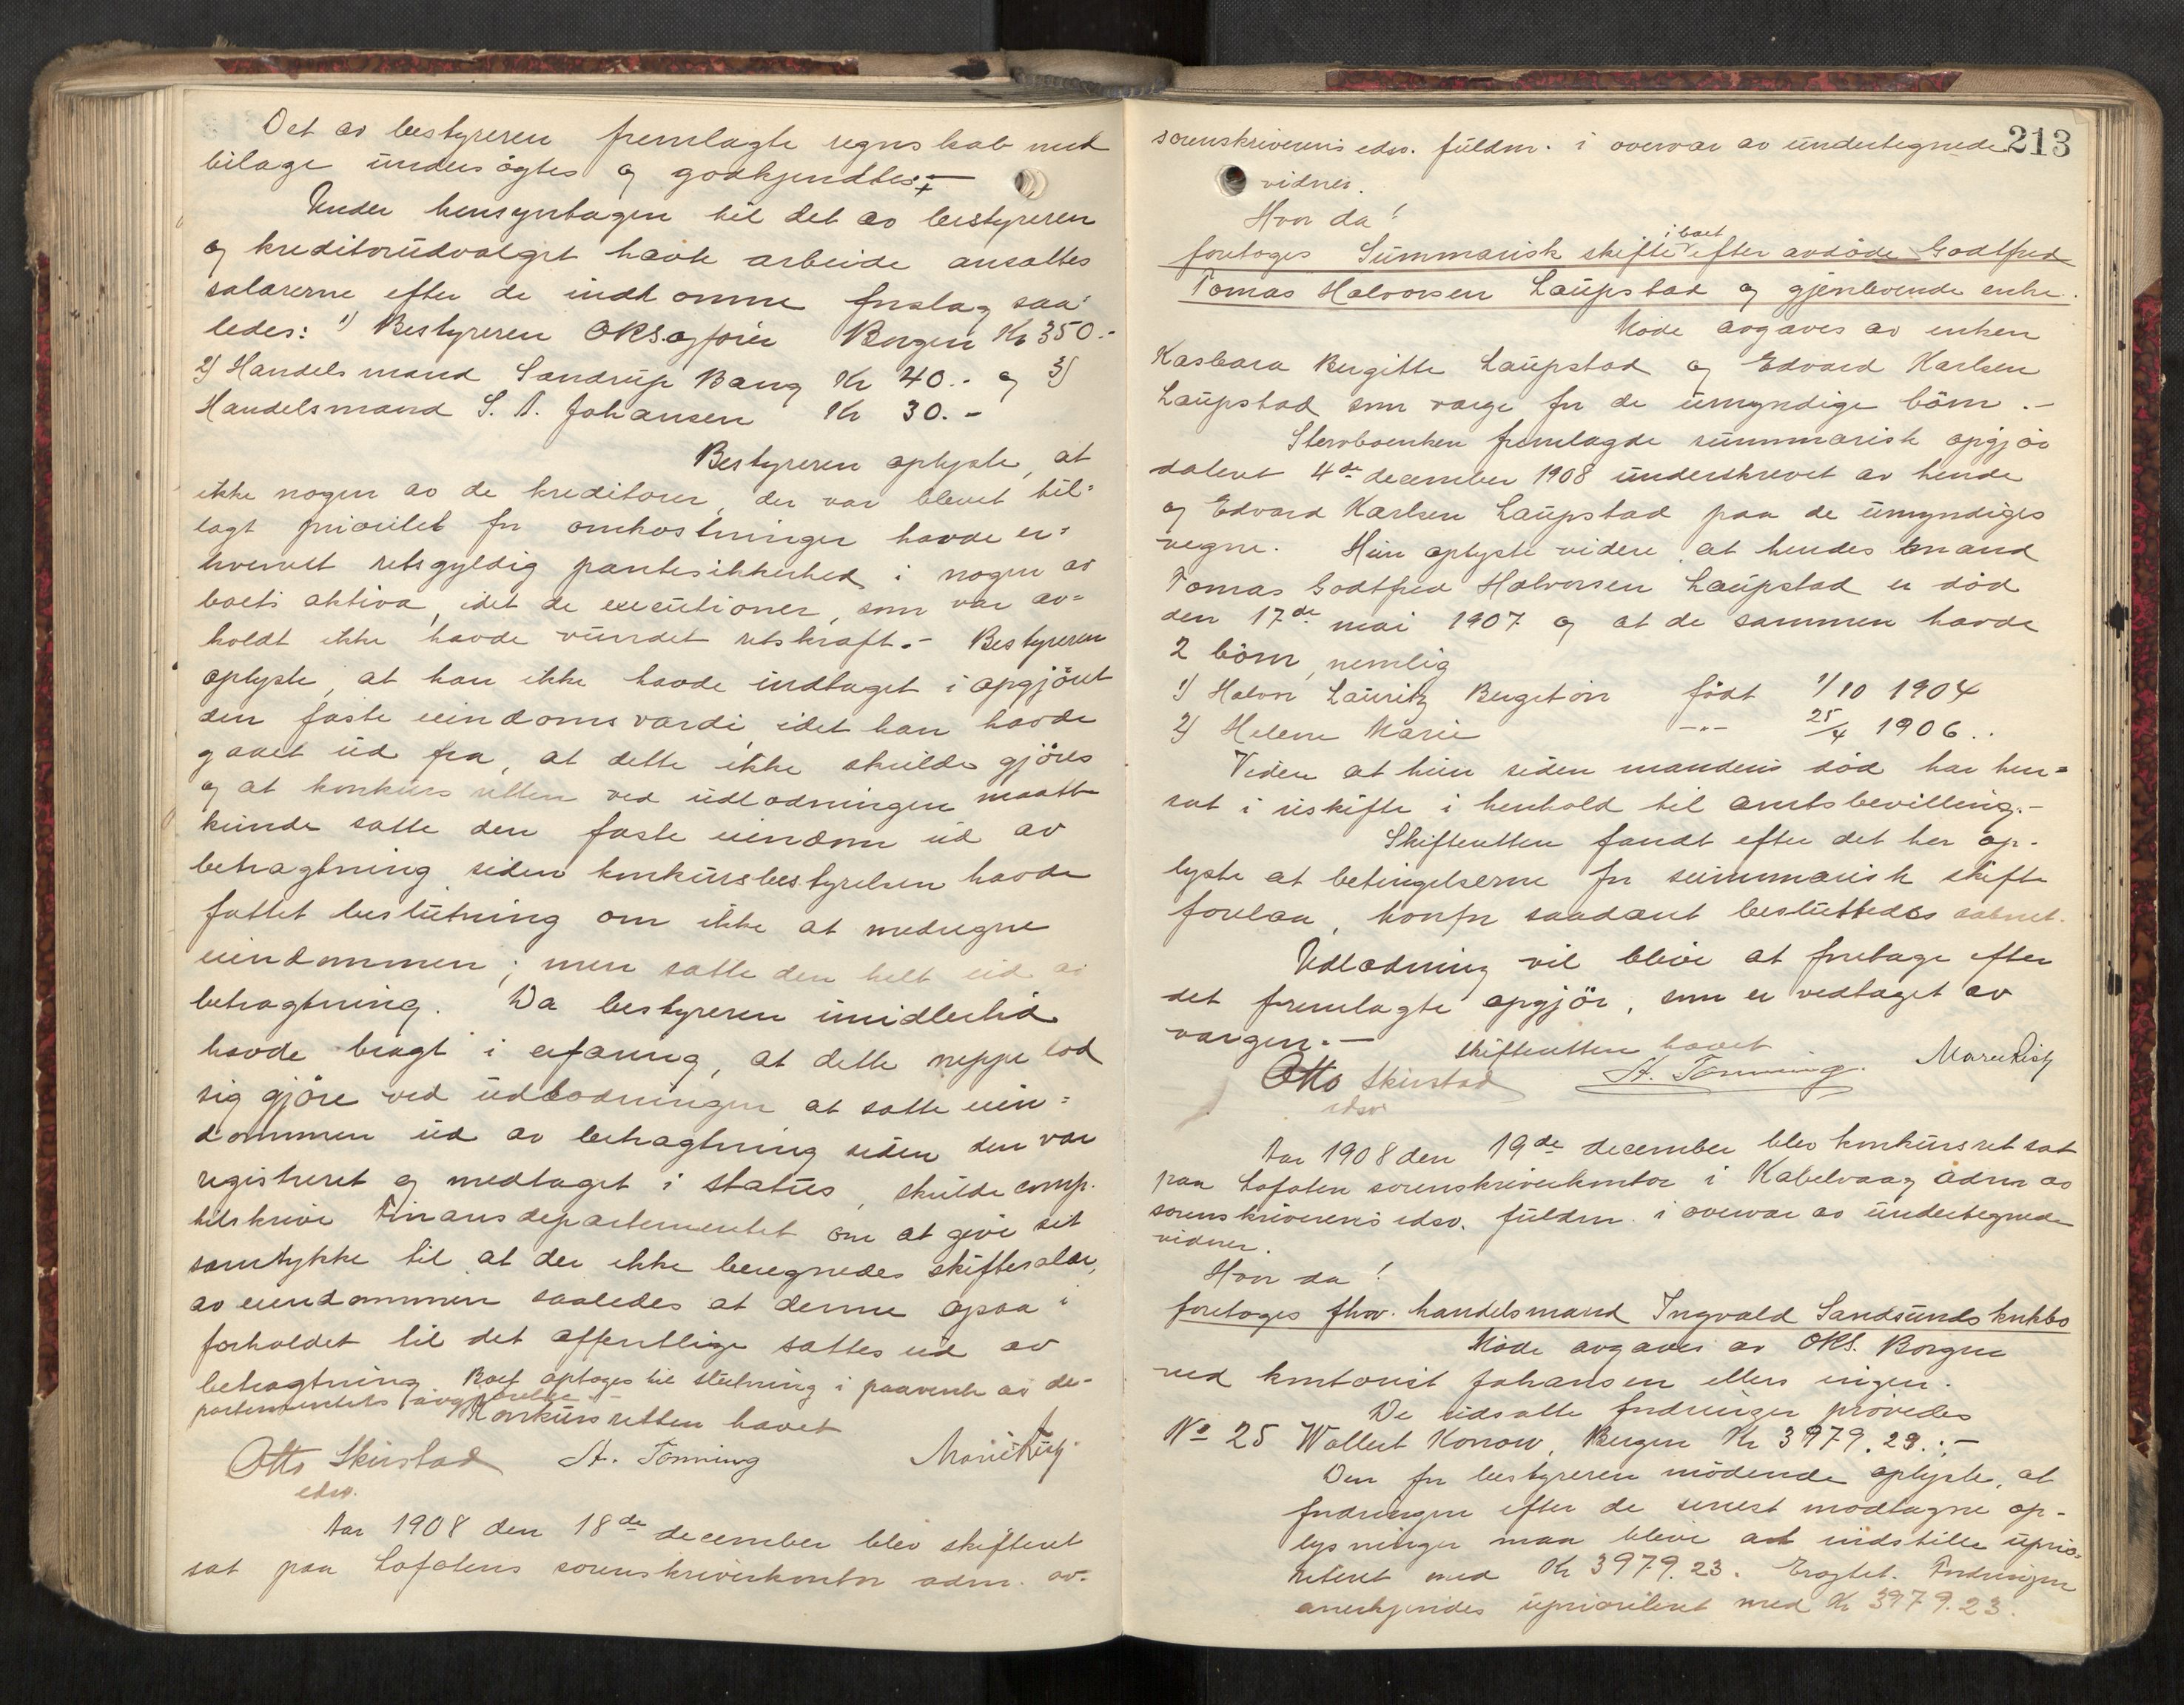 Det av bestyreren fremlagte regnskab med
bilage undersögtes og godkjendtes.-
Under hensyntagen til det av bestyreren
og kreditorudvalget havte arbeide ansattes
salærerne efter de indkomne forslag saa=
ledes: 1) Bestyreren ORSagförer Borgen Kr 350.-
2) Handelsmand Sandrup Bang Kr 40.- og 3)
Handelsmand S. A. Johansen Kr 30.-
Bestyreren oplyste, at
ikke nogen av de kreditorer, der var blevet til=
lagt prioritet for omkostninger havde er=
hvervet retsgyldig pantesikkerhed i nogen av
boets aktiva, idet de executioner, som var av=
holdt ikke havde vundet retskraft.- Bestyreren
oplyste, at han ikke havde indtaget i opgjöret
den faste eiendomsværdi, idet han havde
gaaet ud fra, at dette ikke skulde gjöres
og at konkursretten ved udlodningen maatte
kunde sætte den faste eiendom ud av
betragtning siden konkursbestyrelsen havde
fattet beslutning om ikke at medregne
eiendommen; men satte den helt ud av
betragtning. Da bestyreren imidlertid
havde bragt i erfaring, at dette neppe lod
sig gjöre ved udlodningen at sætte eien=
dommen ud av betragtning siden den var
registreret og medtaget i status, skulde comp.
tilskrive Finansdepartementet om at give sit
samtykke til at der ikke beregnedes skiftesalær,
av eiendommen saaledes at denne ogsaa i
forholdet til det offentlige sattes ud av
betragtning. Boet optoges til slutning i paavente av de-
partementets avgjörelse.-
Konkursretten hævet
Otto Skirstad A. Tönning Marie Risch
edsv.
Aar 1908 den 18de december blev skifteret
sat paa Lofotens sorenskriverkontor adm. av
213
sorenskriverens edsv. fuldm. i overvær av undertegnede
vidner.
Hvor da!
foretoges Summarisk skifte i boet efter avdöde Godtfred
Tomas Halvorsen Laupstad og gjenlevende enke.
Möde avgaves av enken
Kasbara Bergitte Laupstad og Edvard Karlsen
Laupstad som værge for de umyndige börn.-
Stervboenken fremlagde summarisk opgjör
dateret 4de december 1908 underskrevet av hende
og Edvard Karlsen Laupstad paa de umyndiges
vegne. Hun oplyste videre at hendes mand
Tomas Godtfred Halvorsen Laupstad er död
den 17de mai 1907 og at de sammen havde
2 börn, nemlig
1) Halvor Lauritz Bergeton födt 1/10 1904
2) Helene Marie -"- 25/4 1906..
Viden at hun siden mandens död har hen=
sat i uskifte i henhold til amtsbevilling.-
Skifteretten fandt efter det her op-
lyste at betingelserne for summarisk skifte
forelaa, hvorfor saadant besluttedes aabnet.
Udlodning vil blive at foretage efter
det fremlagte opgjör, som er vedtaget av
værgen.-
Skifteretten hævet
Otto Skirstad A. Tönning. Marie Risch
edsv
Aar 1908 den 19de december blev konkursret sat
paa Lofoten sorenskriverkontor i Kabelvaag adm av
sorenskriverens edsv. fuldm. i overvær av undertegnede
vidner.
Hvor da!
foretoges fhv. handelsmand Ingvald Sandsunds knkbo
Möde avgaves av ORS. Borgen
ved kontorist Johansen ellers ingen.
De udsatte fordringer prövedes
No 25 Wollert Konow, Bergen Kr 3979.29.:-
Den for bestyreren mödende oplyste, at
fordringen efter de senest modtagne op-
lysninger maa blive at indstille uprio=
riteret med Kr 3979.23. Eragtet. Fordringen
anerkjendes uprioriteret med Kr 3979.23.